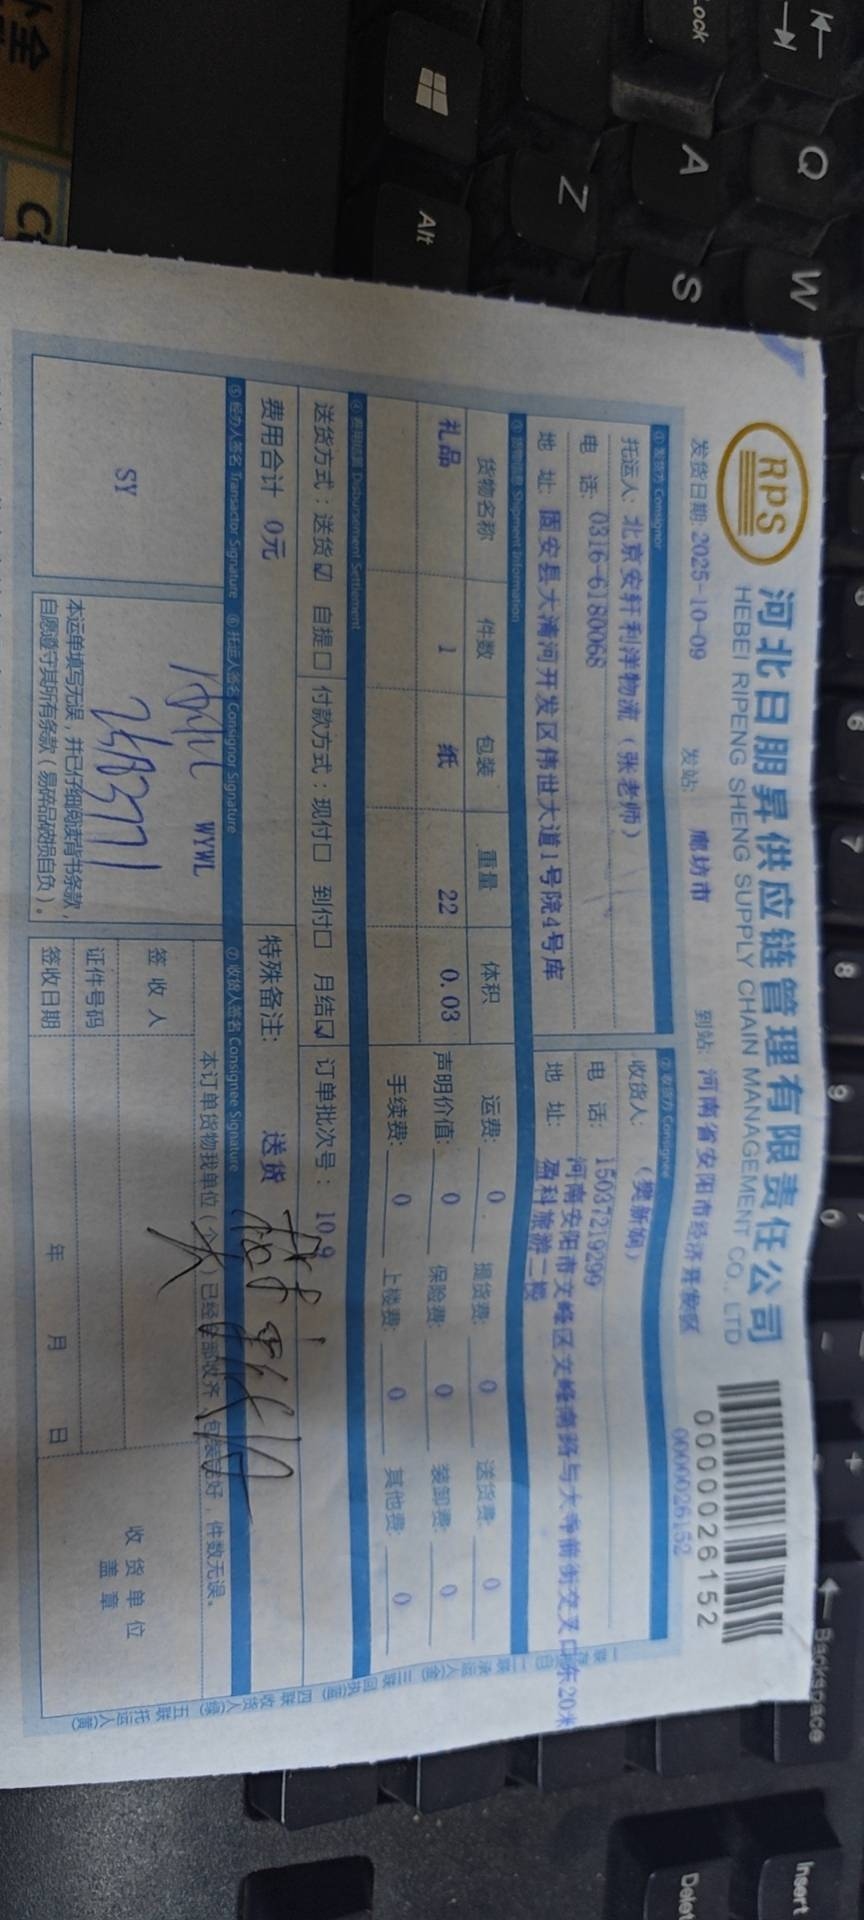 RPS
河北日朋昇供应链管理有限责任公司
HEBEI RIPENG SHENG SUPPLY CHAIN MANAGEMENT CO., LTD
0000026152
0000026152
发货日期: 2025-10-09 发站: 廊坊市 到站: 河南省安阳市经济开发区
① 发货方 Consignor
② 收货方 Consignee
托运人: 北京安轩利洋物流（张老师）
电 话: 0316-6180068
地 址: 固安县大清河开发区伟世大道1号院4号库
收货人: （樊新娟）
电 话: 15037219299
地 址: 河南安阳市文峰区文峰南路与大寺前街交叉口东20米
盈科旅游二楼
③ 货物信息 Shipment Information
货物名称 件数 包装 重量 体积
礼品 1 纸 22 0.03
运费: 0 提货费: 0 送货费: 0
声明价值: 0 保险费: 0 装卸费: 0
手续费: 0 上楼费: 0 其他费: 0
④ 费用结算 Disbursement Settlement
送货方式：送货☑ 自提□ 付款方式：现付□ 到付□ 月结☑ 订单批次号： 10.9
费用合计 0元 特殊备注: 送货
⑤ 经办人签名 Transactor Signature ⑥ 托运人签名 Consignor Signature ⑦ 收货人签名 Consignee Signature
SY
WYWL
本运单填写无误，并已仔细阅读背书条款，
自愿遵守其所有条款（易碎品破损自负）。
本订单货物我单位（个人）已经全部收齐，包装完好，件数无误。
签 收 人
证件号码
签收日期 年 月 日
收货单位
盖 章
二联 承运人(金) 三联 回执(蓝) 四联 收货人(绿) 五联 托运人(黄)
Lock
Q
W
A
S
Z
Alt
6
7
8
9
0
Backspace
Insert
Delet